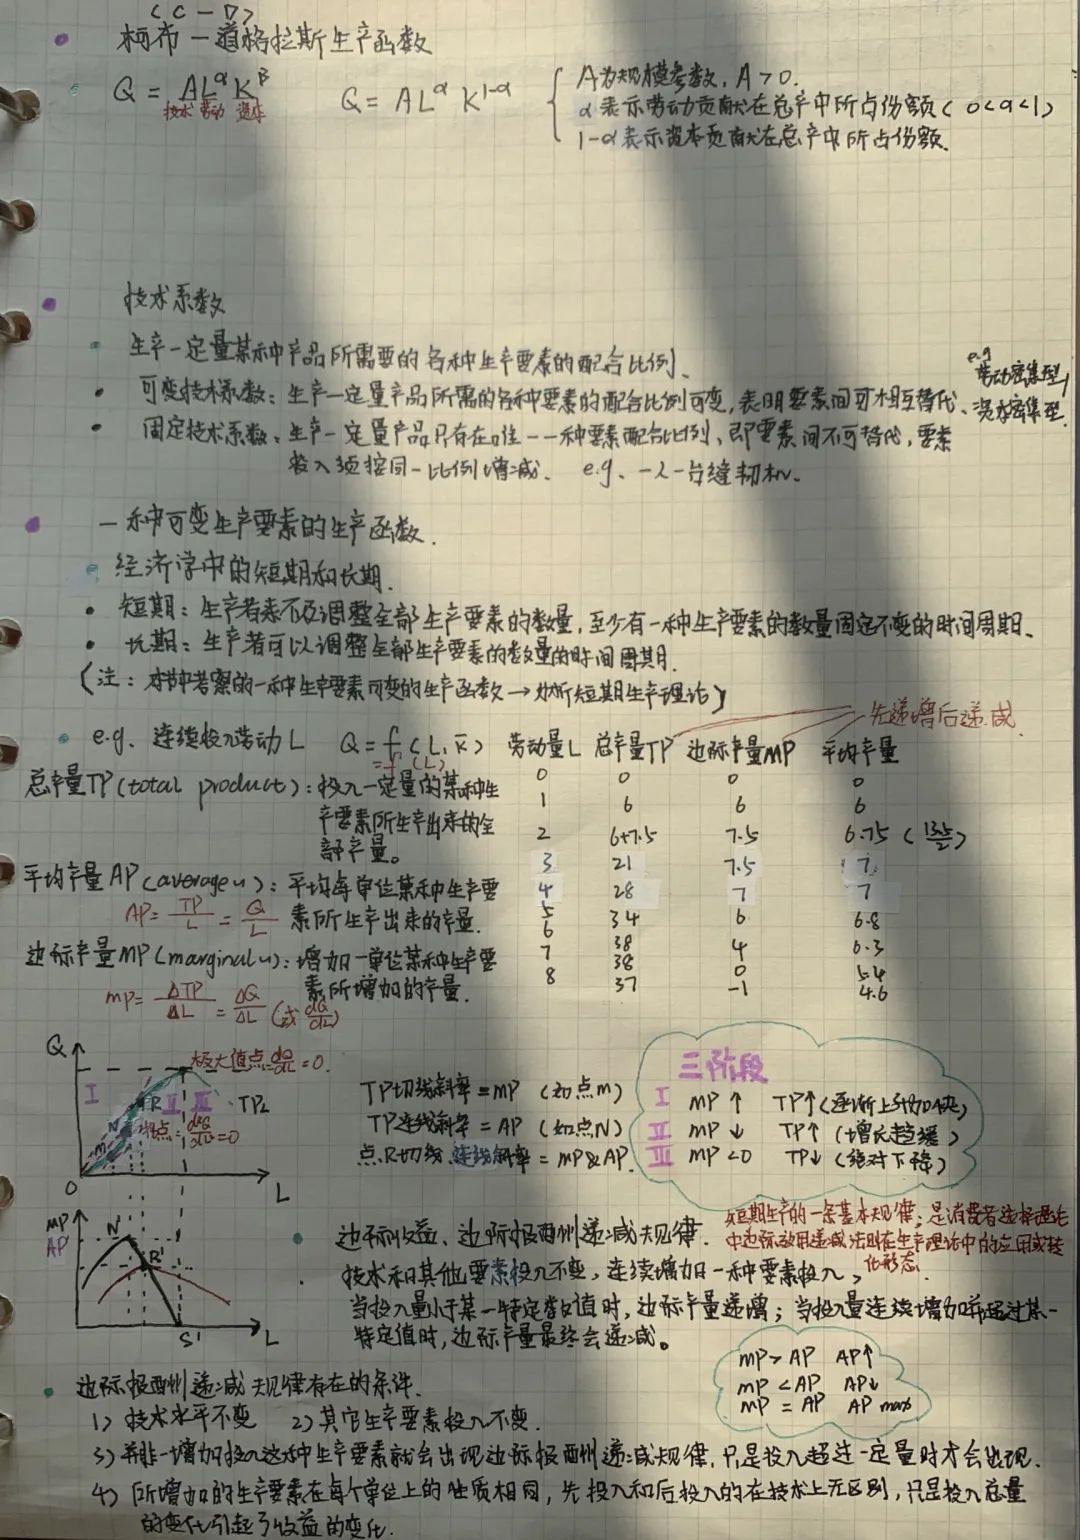 (C-D)
柯布-道格拉斯生产函数
Q = AL^αK^β Q = AL^αK^(1-α) A为规模参数, A>0.
技术 劳动 资本 α表示劳动贡献在总产中所占份额(0<α<1)
1-α表示资本贡献在总产中所占份额.
技术系数
生产一定量某种产品所需要的各种生产要素的配合比例、
e.g 劳动密集型/
可变技术系数: 生产一定量产品所需的各种要素的配合比例可变, 表明要素间可相互替代、资本密集型.
固定技术系数: 生产一定量产品只存在唯一一种要素配合比例、即要素间不可替代, 要素
投入须按同一比例增减. e.g、一人一台缝韧机、
一种可变生产要素的生产函数.
经济学中的短期和长期.
短期: 生产者来不及调整全部生产要素的数量, 至少有一种生产要素的数量固定不变的时间周期、
长期: 生产者可以调整全部生产要素的数量的时间周期.
(注: 本节考察的一种生产要素可变的生产函数→分析短期生产理论)
先递增后递减
e.g. 连续投入劳动L Q=f(L,K̄) 劳动量L 总产量TP 边际产量MP 平均产量
=f(L) 0 0 0 0
总产量TP(total product): 投入一定量的某种生
1 6 6 6
产要素所生产出来的全
2 6+7.5 7.5 6.75 (13.5/2)
部产量。
3 21 7.5 7
平均产量AP(average〃): 平均每单位某种生产要 4 28 7 7
AP= TP/L = Q/L 素所生产出来的产量. 5 34 6 6.8
6 38 4 6.3
边际产量MP(marginal〃): 增加一单位某种生产要 7 38 0 5.4
素所增加的产量. 8 37 -1 4.6
MP= ΔTP/ΔL = ΔQ/ΔL (或dQ/dL)
Q 极大值点 dQ/dL=0.
I II III TP_L
R N M
拐点: d²Q/dL²=0
O L
TP切线斜率=MP (如点M)
TP连线斜率=AP (如点N)
点R切线、连线斜率=MP&AP.
三阶段
I MP↑ TP↑(逐渐上升加快)
II MP↓ TP↑(增长趋缓)
III MP<0 TP↓(绝对下降)
MP
AP
N' R' S' L
边际收益、边际报酬递减规律. 短期生产的一条基本规律; 是消费者选择理论
中边际效用递减法则在生产理论中的应用或转
化形态.
技术和其他要素投入不变, 连续增加一种要素投入,
当投入量小于某一特定数值时, 边际产量递增; 当投入量连续增加并超过某一
特定值时, 边际产量最终会递减。
MP>AP AP↑
MP<AP AP↓
MP=AP AP max
边际报酬递减规律存在的条件.
1) 技术水平不变 2) 其它生产要素投入不变.
3) 并非一增加投入这种生产要素就会出现边际报酬递减规律, 只是投入超过一定量时才会出现.
4) 所增加的生产要素在每个单位上的性质相同, 先投入和后投入的在技术上无区别, 只是投入总量
的变化引起了收益的变化.